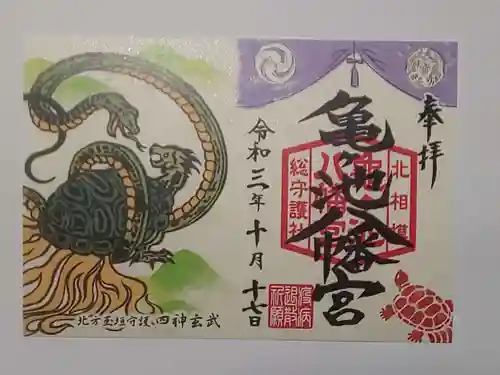 奉拝
亀池八幡宮
北相模
総守護社
令和三年十月十七日
疫病
退散
祈願
北方玉垣守護 四神玄武